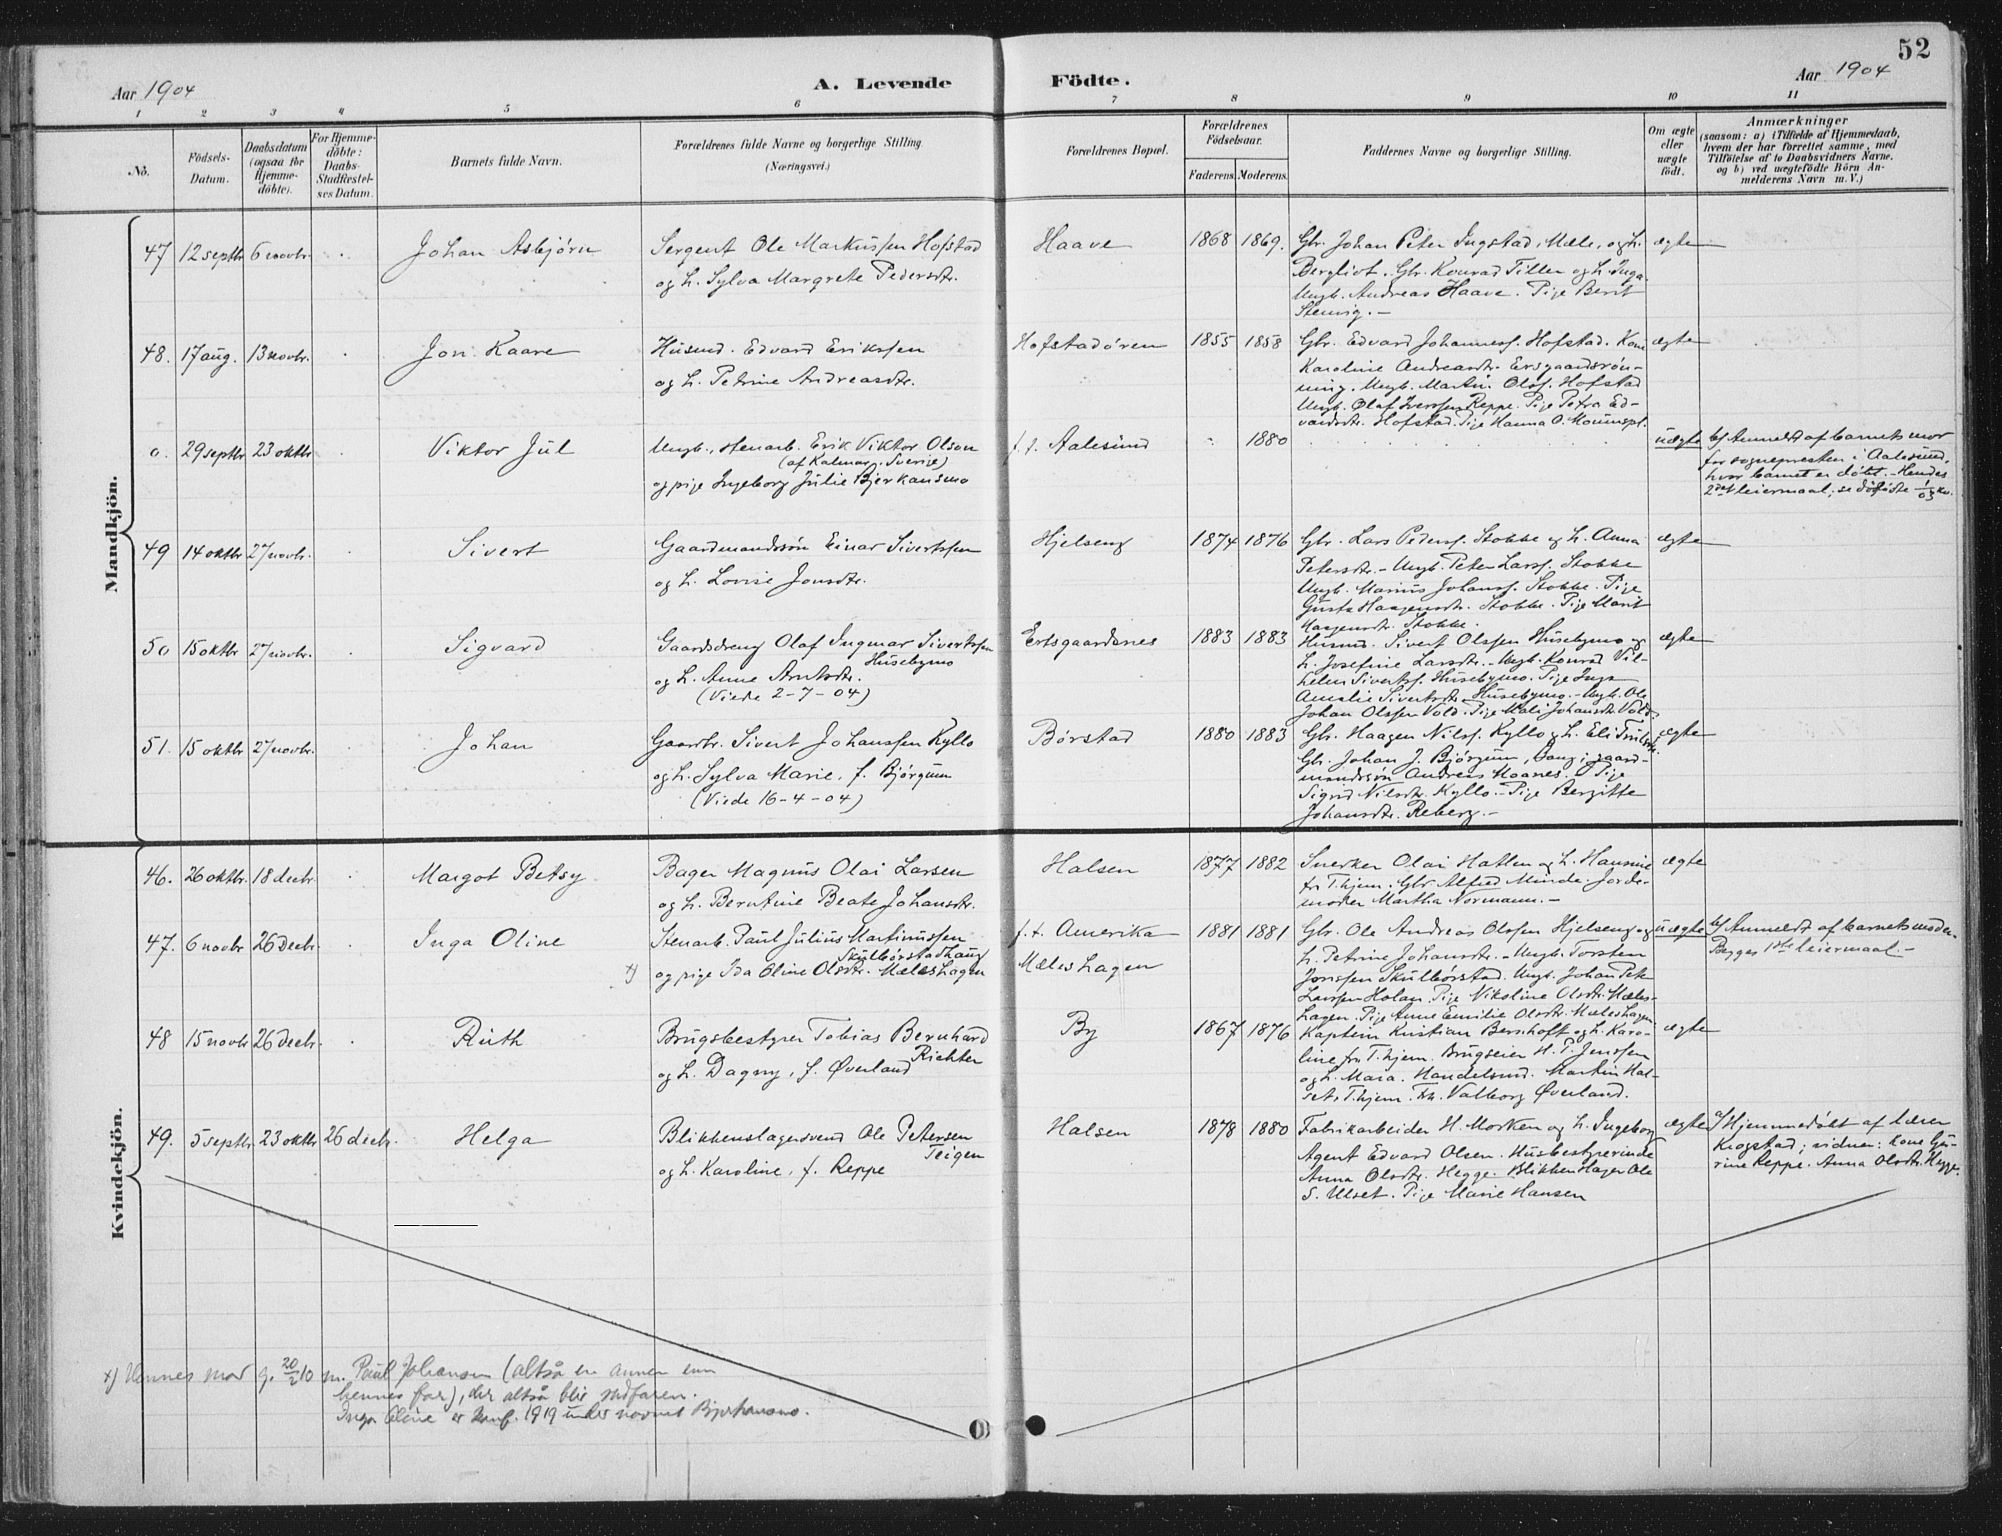 52
Aar 1904
A. Levende
Födte.
Aar 1904
1 2 3 4 5 6 7 8 9 10 11
No.
Födsels-
Datum.
Daabsdatum
(ogsaa for
Hjemme-
döbte).
For Hjemme-
döbte:
Daabs-
Stadfæstel-
ses Datum.
Barnets fulde Navn.
Forældrenes fulde Navne og borgerlige Stilling.
(Næringsvei.)
Forældrenes Bopæl.
Forældrenes
Födselsaar.
Faderens. Moderens.
Faddernes Navne og borgerlige Stilling.
Om ægte
eller
uægte
födt.
Anmærkninger
(saasom: a) i Tilfælde af Hjemmedaab,
hvem der har forrettet samme, med
Tilföielse af to Daabsvidners Navne.
og b) ved uægtefödte Börn An-
melderens Navn m. V.)
Mandkjön.
47 12 septbr 6 novbr. Johan Asbjørn
Sergent Ole Markussen Hofstad
og h. Sylva Margrete Pedersdtr.
Haave 1868 1869.
Gbr. Johan Peter Ingstad, Mæle, og h.
Bergliot. Gbr. Konrad Tiller og h. Inga.
Ungk. Andreas Haave. Pige Berit
Stenvig. —
ægte
48. 17 aug. 13 novbr. Jon Kaare
Husmd. Edvard Erikssen
og h. Petrine Andreasdtr.
Hofstadøren 1855 1858
Gbr. Edvard Johanness. Hofstad. Kone
Karoline Andreasdtr. Ersgaardsrøn-
ning. Ungk. Martin Olsf. Hofstad
Ungk. Olaf Iverssen Reppe. Pige Petra Ed-
vardsdtr. Hofstad. Pige Hanna O.
ægte
0. 29 septbr 23 oktbr Viktor Jul
Ungk., stenarb. Erik Viktor Olson
(af Kalmar, Sverige)
og pige Ingeborg Julie Bjerkansmo
f.t. Aalesund 1880
uægte
b/ Anmeldt af barnets mor
for sognepresten i Aalesund,
hvor barnet er døbt. - Hendes
2det leiermaal; se
49 14 oktbr 27 novbr. Sivert
Gaardmandssøn Einar Sivertssen
og h. Lovise Jonsdtr.
Hjelseng 1874 1876
Gbr. Lars Pederss. Stokke og h. Anna
Petersdtr. - Ungk. Peter Larss. Stokke
Ungk. Marius Johanss. Stokke. Pige
Gusta Haagensdtr. Stokke. Pige Marit
Haagensdtr. Stokke.
ægte
50 15 oktbr 27 novbr. Sigvard
Gaardsdreng Olaf Ingmar Sivertssen
Husebymo
og h. Anne Arntsdtr.
(Viede 2-7-04)
Ertsgaardsnes 1883 1883
Husmd. Sivert Olssen Husebymo og
h. Josefine Larsdtr. - Ungk. Konrad Vil-
helm Sivertss. Husebymo. Pige Inga
Amalie Sivertsdtr. Husebymo. - Ungk. Ole
Johan Olssen Vold. Pige Mali Johansdtr. Vold.
ægte
51. 15 oktbr 27 novbr. Johan
Gaardbr. Sivert Johanssen Kyllo
og h. Sylva Marie, f. Bjørgum
(Viede 16-4-04)
Børstad 1880 1883
Gbr. Haagen Nilss. Kyllo og h. Eli
Gbr. Johan J. Bjørgum, gaard-
mandssøn Andreas Moanes. Pige
Sigrid Nilsdtr. Kyllo. - Pige Bergitte
Johansdtr. Reberg. -
ægte
Kvindekjön.
46. 26 oktbr. 18 decbr. Margot Betsy
Bager Magnus Olai Larsen
og h. Berntine Beate Johansdtr.
Halsen 1877 1882
Snerker Olai Hatlen og h. Hansine
fr. T.hjem. Gbr Alfred Minde. Jorde-
moder Martha Normann. -
ægte
47. 6 novbr 26 Decbr. Inga Oline
Stenarb. Paul Julius Martinussen
Skulbørstadhaug
x) og pige Ida Oline Olsdtr. Mæleshagen
f.t. Amerika 1881 1881
Mæleshagen
Gbr. Ole Andreas Olssen Hjelseng og
h. Petrine Johansdtr. - Ungk. Torsten
Jonssen Skulbørstad. Ungk. Johan Peter
Larssen Holan. Pige Nikoline Olsdtr. Mæles-
hagen. Pige Anne Emilie Olsdtr. Mæleshagen
uægte
b/ Anmeldt af barnets moder.
Begges 1ste leiermaal. -
48 15 novbr 26 decbr. Ruth
Brugsbestyrer Tobias Bernhard
Richter
og h. Dagny, f. Øverland
By 1867 1876
Kaptein Kristian Bernhoft og h. Karo-
line fr. T.hjem. Brugseier H. P. Jenssen
og h. Mara. Handelsmd. Martin Hal-
set, T.hjem. Frk. Valborg Øverland.
ægte
49. 5 septbr. 23 oktbr 26 decbr. Helga
Blikkenslagersvend Ole Petersen
Teigen
og h. Karoline, f. Reppe
Halsen 1878 1880
Fabrikarbeider H. Morken og h. Ingeborg
Agent Edvard Olsen. Husbestyrerinde
Anna Olsdtr. Hegge. Blikkenslager Ole
S. Ulset. Pige Marie Hansen
ægte
a/ Hjemmedøbt af lærer
Krogstad; vidner: kone Gu-
rine Reppe. Anna Olsdtr. Hegge.
x) Hennes mor g. 20/2 10 m. Paul Johansen (altså en annen enn
hennes far), der altså blir stedfaren.
Inga Oline er konf. 1919 under navnet Bjerkansmo.